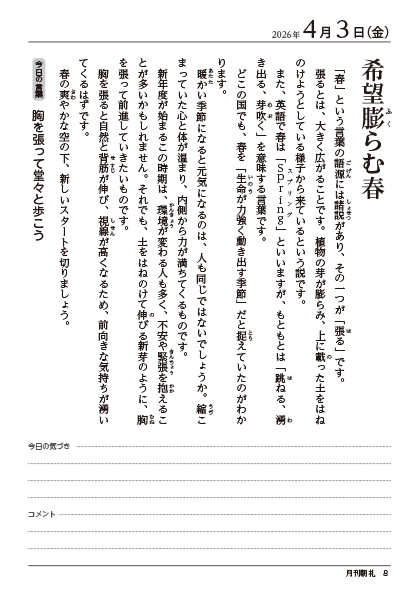 2026年 4月3日(金)
希望膨らむ春
「春」という言葉の語源には諸説があり、その一つが「張る」です。
張るとは、大きく広がることです。植物の芽が膨らみ、上に載った土をはね
のけようとしている様子から来ているという説です。
また、英語で春は「Spring」といいますが、もともとは「跳ねる、湧
き出る、芽吹く」を意味する言葉です。
どこの国でも、春を「生命が力強く動き出す季節」だと捉えていたのがわか
ります。
暖かい季節になると元気になるのは、人も同じではないでしょうか。縮こ
まっていた心と体が温まり、内側から力が満ちてくるものです。
新年度が始まるこの時期は、環境が変わる人も多く、不安や緊張を抱えるこ
とが多いかもしれません。それでも、土をはねのけて伸びる新芽のように、胸
を張って前進していきたいものです。
胸を張ると自然と背筋が伸び、視線が高くなるため、前向きな気持ちが湧い
てくるはずです。
春の爽やかな空の下、新しいスタートを切りましょう。
今日の言葉 胸を張って堂々と歩こう
今日の気づき
コメント
月刊朝礼 8